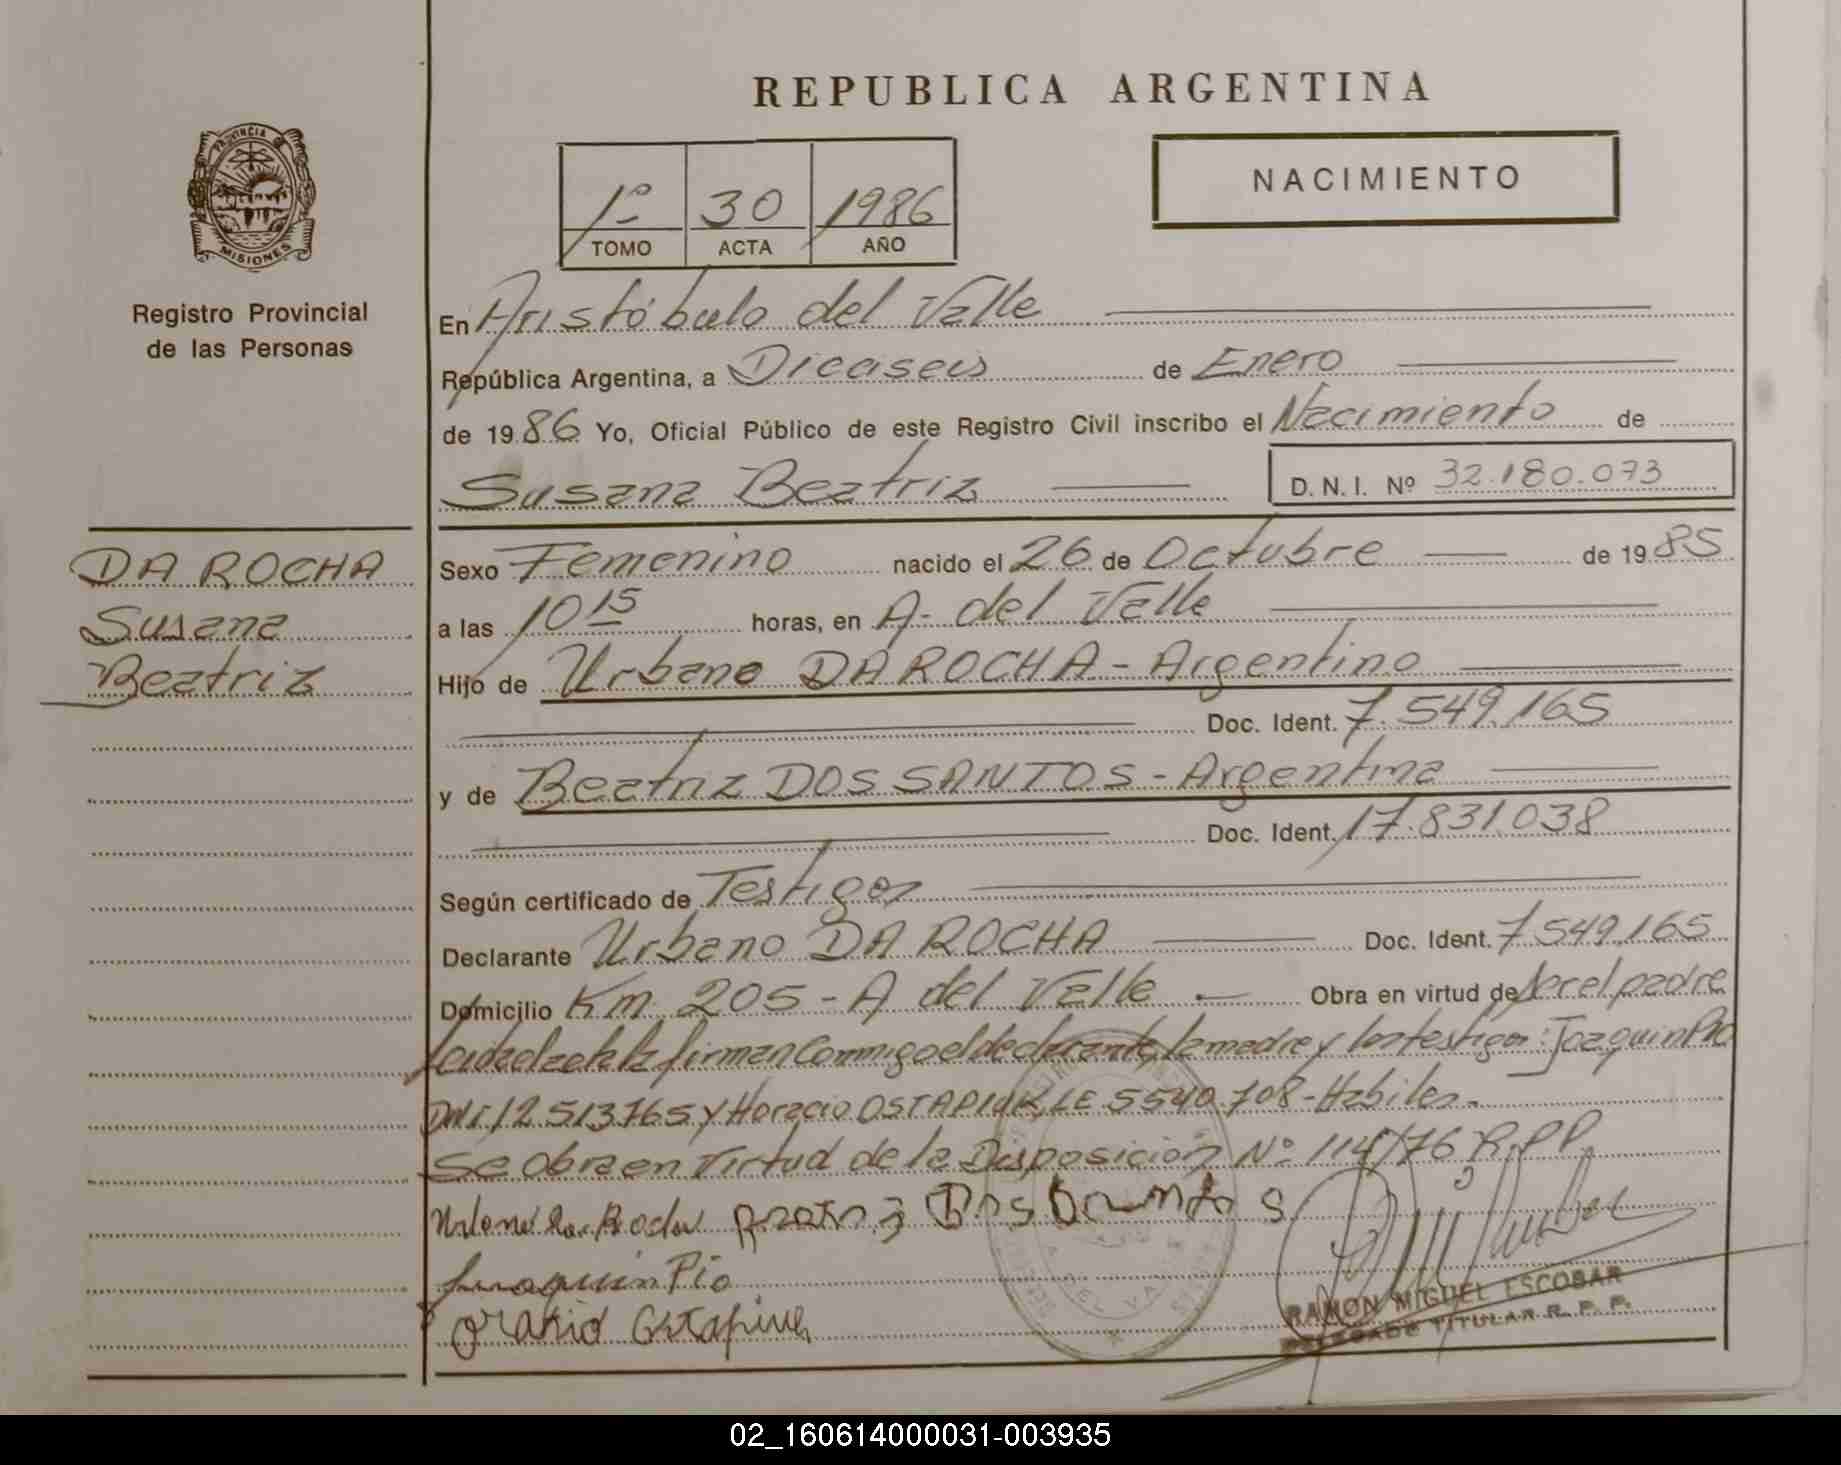 REPUBLICA ARGENTINA
PROVINCIA
MISIONES
Registro Provincial
de las Personas
1º 30 1986
TOMO ACTA AÑO
NACIMIENTO
En Aristóbulo del Valle
República Argentina, a Dicaseis de Enero
de 1986 Yo, Oficial Público de este Registro Civil inscribo el Nacimiento de
Susana Beatriz D.N.I. Nº 32.180.073
DA ROCHA
Susana
Beatriz
Sexo Femenino nacido el 26 de Octubre de 1985
a las 10 15 horas, en A. del Valle
Hijo de Urbano DA ROCHA - Argentino
Doc. Ident. 7.549.165
y de Beatriz DOS SANTOS - Argentina
Doc. Ident. 17.831.038
Según certificado de Testigos
Declarante Urbano DA ROCHA Doc. Ident. 7549.165
Domicilio Km 205 - A del Valle . Obra en virtud de ser el padre
Leida el acta la firman conmigo el declarante, la madre y los testigos: Joaquin Pio
DNI 12.513765 y Horacio OSTAPIUK, LE 5540.708 - Habiles.
Se obra en virtud de la Disposición Nº 114/76 R.PP.
Dos
Joaquin Pio
RAMON MIGUEL ESCOBAR
DELEGADO TITULAR R. P. P.
02_160614000031-003935